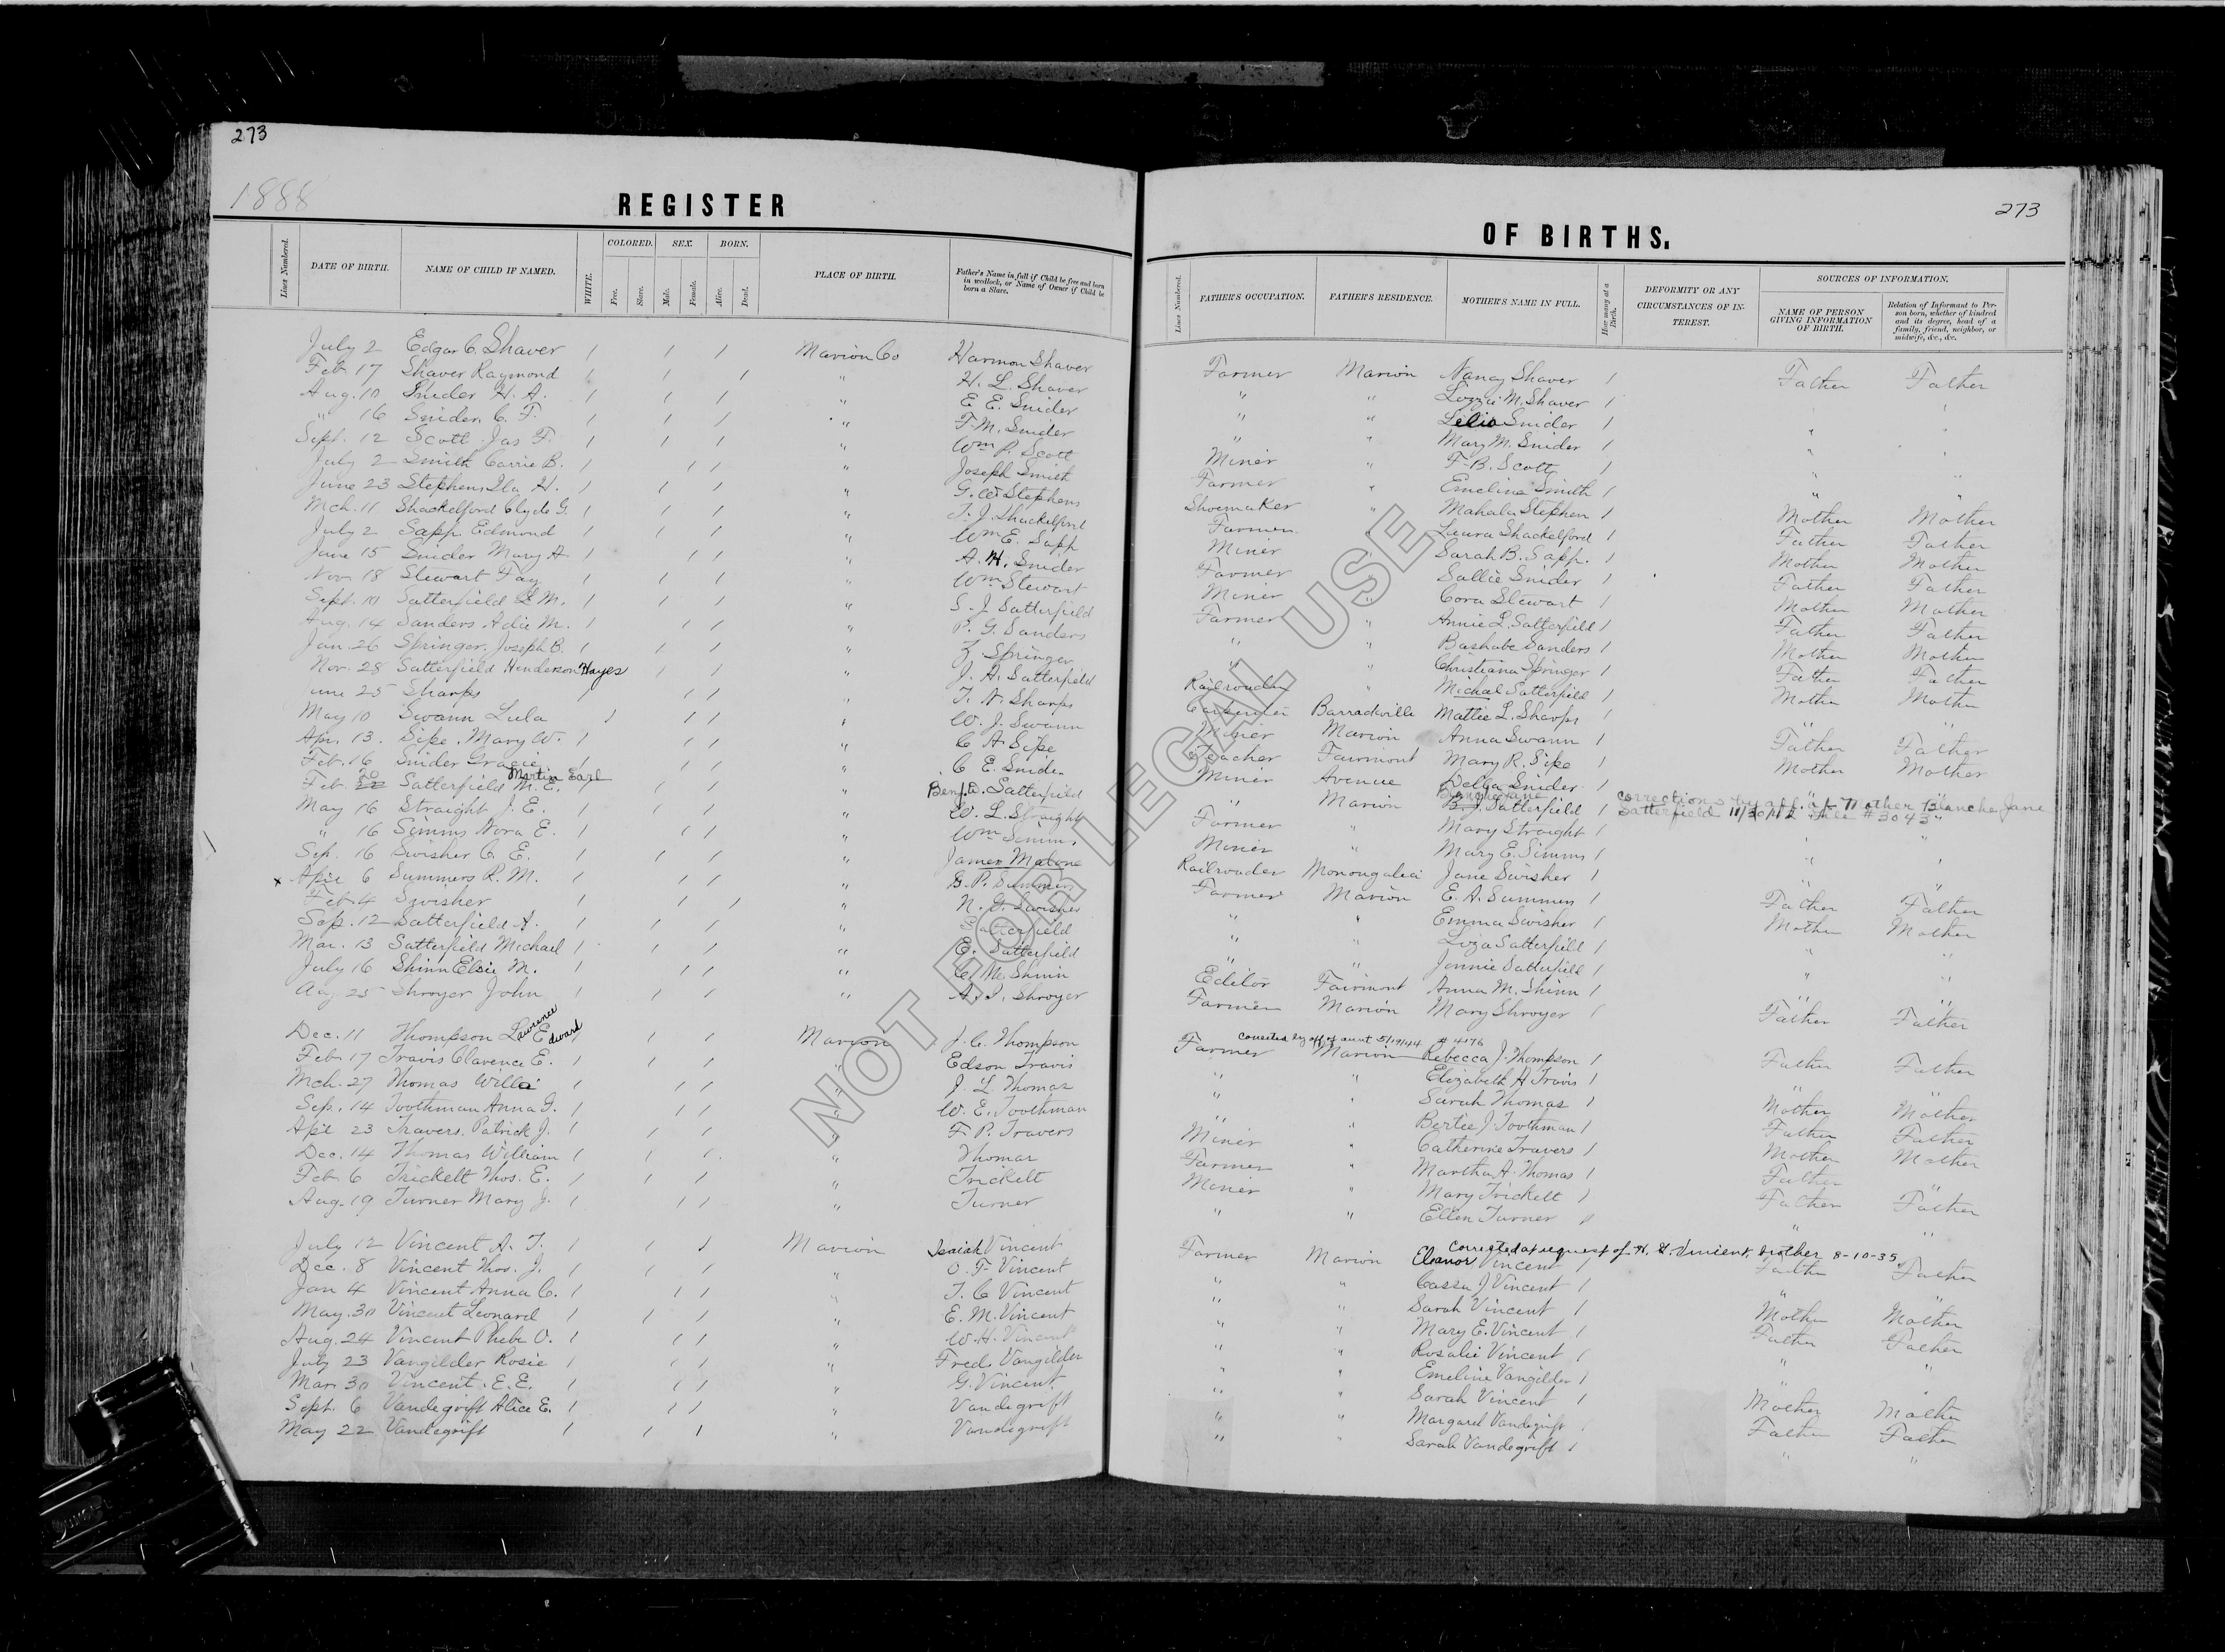 273
1888
REGISTER
Lines Numbered. DATE OF BIRTH. NAME OF CHILD IF NAMED. WHITE. COLORED. Free. Slave. SEX. Male. Female. BORN. Alive. Dead. PLACE OF BIRTH. Father's Name in full if Child be free and born in wedlock, or Name of Owner if Child be born a Slave.
July 2 Edgar C. Shaver / / / Marion Co Harmon Shaver
Feb. 17 Shaver Raymond / / / " H. L. Shaver
Aug. 10 Snider H. A. / / / " E. E. Snider
" 16 Snider C. F. / / / " F. M. Snider
Sept. 12 Scott Jas F. / / / " Wm P. Scott
July 2 Smith Carrie B. / / / " Joseph Smith
June 23 Stephens Ila H. / / / " G. W. Stephens
Mch. 11 Shackelford Clyde G. / / / " T. J. Shackelford
July 2 Sapp Edmond / / / " Wm E. Sapp
June 15 Snider Mary A. / / / " A. H. Snider
Nov. 18 Stewart Fay / / / " Wm Stewart
Sept. 10 Satterfield L M. / / / " S. J. Satterfield
Aug. 14 Sanders Adie M. / / / " P. G. Sanders
Jan. 26 Springer, Joseph B. / / / " Z. Springer
Nov. 28 Satterfield Henderson Hayes / / " J. A. Satterfield
une 25 Sharps / / / " T. N. Sharps
May 10 Swann Lula / / / " W. J. Swann
Apr. 13. Sipe, Mary W. / / / " C A Sipe
Feb. 16 Snider Gracie / / / " C E. Snider
Feb. 20 Satterfield M. E. Martin Earl / / / " Benj. D. Satterfield
May 16 Straight J. E. / / / " W. L. Straight
" 16 Simms Nora E. / / / " Wm Simms
Sep. 16 Swisher C. E. / / / " James Malone
x Apr 6 Summers R. M. / / / " G. P. Summers
Feb. 4 Swisher / / / " N. G. Swisher
Sep. 12 Satterfield A. / / / " Satterfield
Mar. 13 Satterfield Michael / / / " E. Satterfield
July 16 Shinn Elsie M. / / / " C. M. Shinn
Aug 25 Shroyer John / / / " A. J. Shroyer
Dec. 11 Thompson Lawrence Edward / / / Marion J. C. Thompson
Feb. 17 Travis Clarence E. / / / " Edson Travis
Mch. 27 Thomas Willa / / / " J. L. Thomas
Sep. 14 Toothman Anna G. / / / " W. E. Toothman
Apr 23 Travers, Patrick J. / / / " F. P. Travers
Dec. 14 Thomas William / / / " Thomas
Feb. 6 Trickett Thos. E. / / / " Trickett
Aug. 19 Turner Mary J. / / / " Turner
July 12 Vincent A. T. / / / Marion Isaiah Vincent
Dec. 8 Vincent Thos. J. / / / " O. F. Vincent
Jan 4 Vincent Anna C. / / / " T. C Vincent
May. 30 Vincent Leonard / / / " E. M. Vincent
Aug. 24 Vincent Pheba O. / / / " W. H. Vincent
July 23 Vangilder Rosie / / / " Fred. Vangilder
Mar. 30 Vincent. E. E. / / / " G. Vincent
Sept. 6 Vandegrift Alice E. / / / " Vandegrift
May 22 Vandegrift / / / " Vandegrift
273
OF BIRTHS.
Lines Numbered. FATHER'S OCCUPATION. FATHER'S RESIDENCE. MOTHER'S NAME IN FULL. How many at a Birth. DEFORMITY OR ANY CIRCUMSTANCES OF INTEREST. SOURCES OF INFORMATION. NAME OF PERSON GIVING INFORMATION OF BIRTH. Relation of Informant to Person born, whether of kindred and its degree, head of a family, friend, neighbor, or midwife, &c., &c.
Farmer Marion Nancy Shaver / Father Father
" " Lozzie M. Shaver /
" " Lelia Snider /
" " Mary M. Snider /
Miner " F. B. Scott /
Farmer " Emeline Smith /
Shoemaker " Mahala Stephen / Mother Mother
Farmer " Laura Shackelford / Father Father
Miner " Sarah B. Sapp. / Mother Mother
Farmer " Sallie Snider / Father Father
Miner " Cora Stewart / Mother Mother
Farmer " Annie L. Satterfield / Father Father
" " Bashaba Sanders / Mother Mother
" " Christiana Springer / Father Father
Railroader " Michal Satterfield / Mother Mother
Carpenter Barrackville Mattie L. Sharps / " "
Miner Marion Anna Swann / Father Father
Teacher Fairmont Mary R. Sipe / Mother Mother
Miner Avenue Della Snider / " "
" Marion Blanche Jane B. J. Satterfield / corrections by aff. of Mother Blanche Jane Satterfield 11/30/42 See #3043
Farmer " Mary Straight /
Miner " Mary E. Simms /
Railroader Monongalia Jane Swisher / " "
Farmer Marion E. A. Summers / Father Father
" " Emma Swisher / Mother Mother
" " Liza Satterfield / " "
" " Jennie Satterfield / " "
Editor Fairmont Anna M. Shinn / " "
Farmer Marion Mary Shroyer / Father Father
Corrected by aff of aunt 5/19/44 # 4176
Farmer Marion Rebecca J. Thompson / Father Father
" " Elizabeth A Travis / " "
" " Sarah Thomas / Mother Mother
" " Bertie J. Toothman / Father Father
Miner " Catherine Travers / Mother Mother
Farmer " Martha A. Thomas / Father "
Miner " Mary Trickett / Father Father
" " Ellen Turner / " "
Corrected at request of Vincent, brother 8-10-35
Farmer Marion Eleanor Vincent / Father Father
" " Cassa J Vincent / " "
" " Sarah Vincent / Mother Mother
" " Mary E. Vincent / Father Father
" " Rosalie Vincent / " "
" " Emeline Vangilder / " "
" " Sarah Vincent / Mother Mother
" " Margaret Vandegrift / Father Father
" " Sarah Vandegrift / " "
NOT FOR LEGAL USE